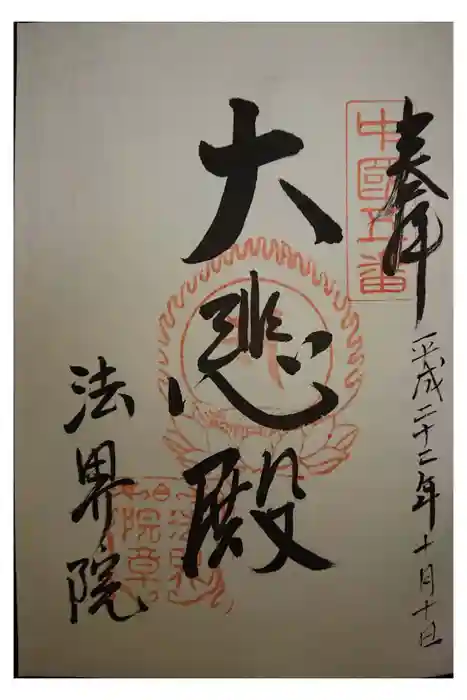 奉拝
平成二十二年十月十日
中國五番
大悲殿
法界院